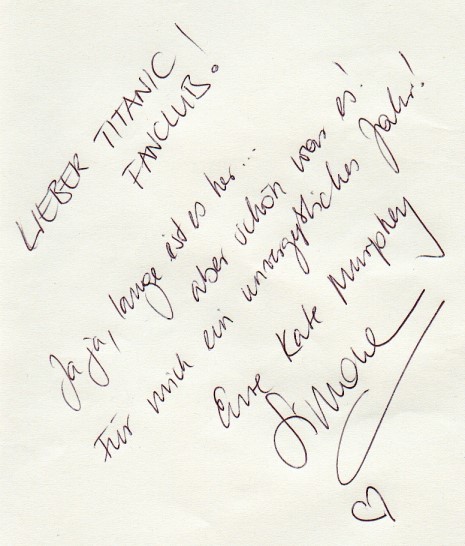 LIEBER TITANIC
FANCLUB!
Ja ja, lange ist es her...
aber schön war es!
Für mich ein unvergeßliches Jahr!
Eure Kate Murphey
Simone